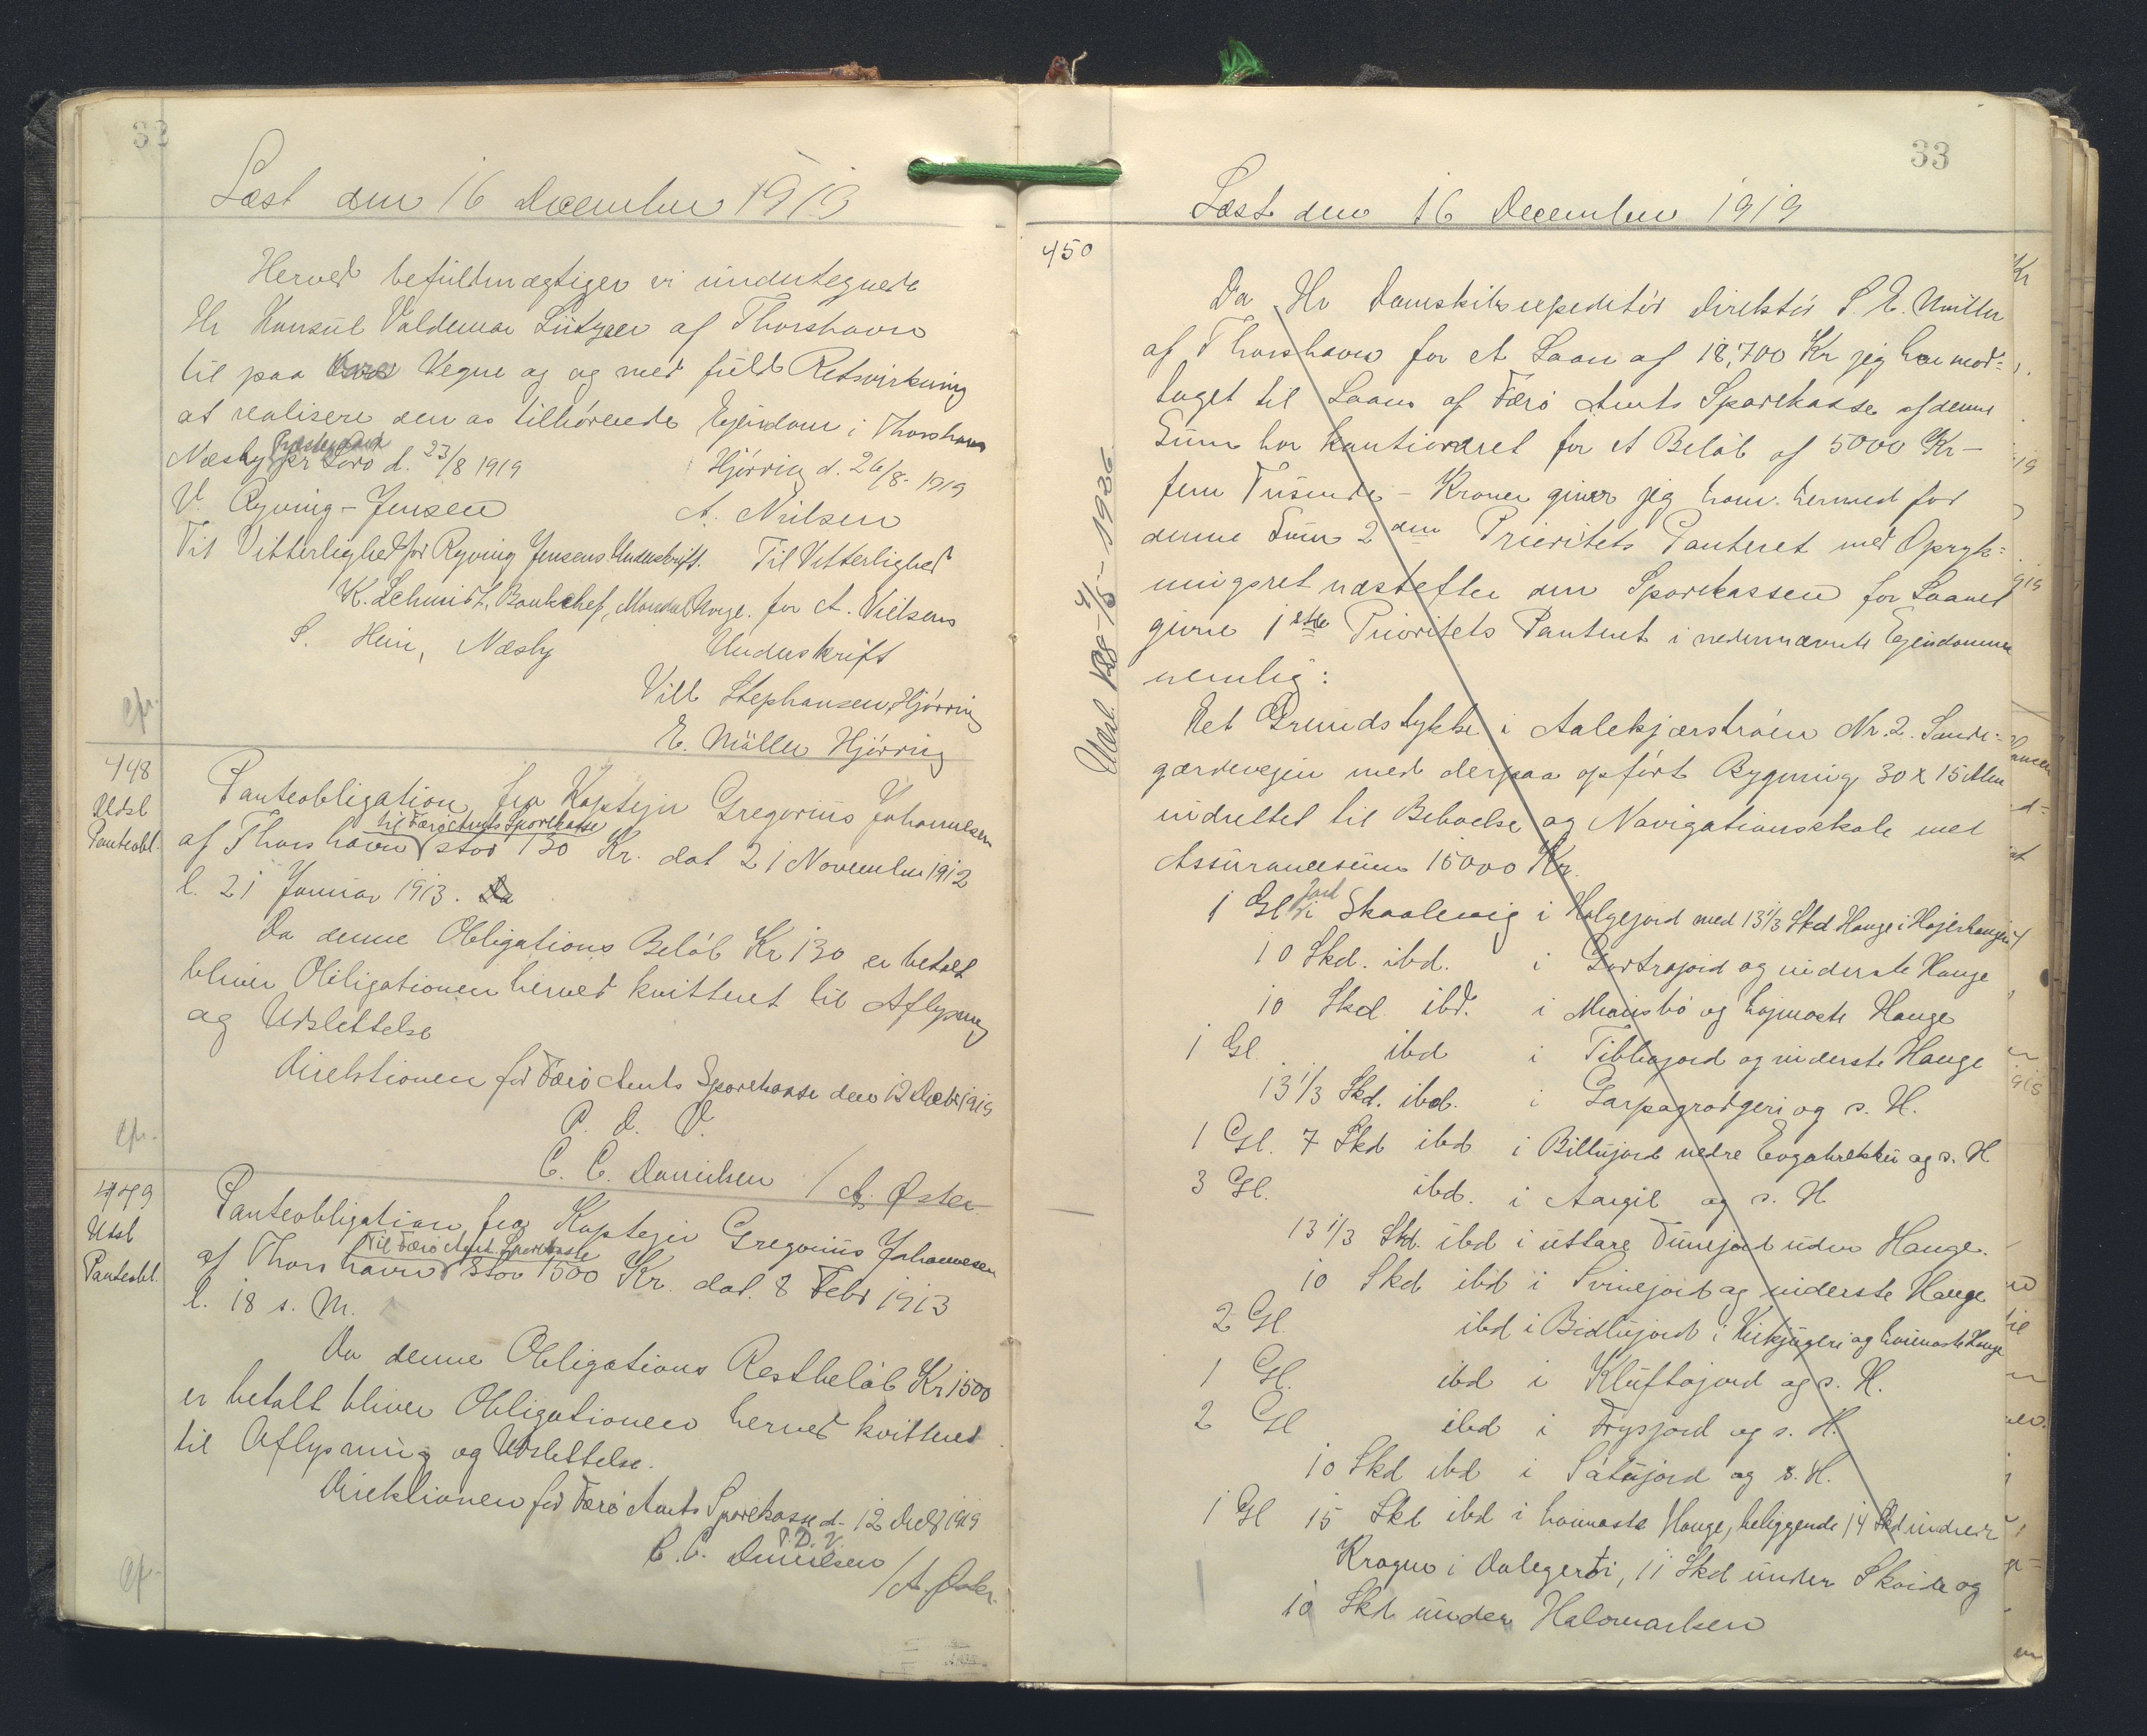 32
Læst den 16 December 1919
Herved befuldmægtiger vi undertegnede
Hr Konsul Valdemar Lützen af Thorshavn
til paa vore Vegne og og med fuld Retsvirkning
at realisere den os tilhørende Ejendom i Thorshavn
Næsby Præstegaard pr Sorø d. 23/8 1919 Hjørring d. 26/8 - 1919
V. Ryving-Jensen A. Nielsen
Til Vitterlighed for Ryving Jensens Underskrift. Til Vitterlighed
K. Schmidt, Bankchef, Mandal Norge. for A. Nielsens
S. Hein, Næsby Underskrift
Vilh Stephansen, Hjørring
E. Müller Hjørring
448
Udsl
Panteobl.
Panteobligation fra Kaptejn Gregorius Johannesen
af Thorshavn til Færø Amts Sparekasse stor 130 Kr. dat 21 November 1912
l. 21 Januar 1913.
Da denne Obligations Beløb Kr 130 er betalt
bliver Obligationen herved kvitteret til Aflysning
og Udslettelse
Direktionen for Færø Amts Sparekasse den 12 Decbr 1919
P. D. V.
C. C. Danielsen / A. Øster
449
Udsl
Panteobl.
Panteobligation fra Kaptejn Gregorius Johannesen
af Thorshavn til Færø Amts Sparekasse stor 1500 Kr. dat. 8 Febr 1913
l. 18 s. M.
Da denne Obligations Restbeløb Kr 1500
er betalt bliver Obligationen herved kvitteret
til Aflysning og Udslettelse.
Direktionen for Færø Amts Sparekasse d. 12 Decbr 1919
P. D. V.
C. C. Danielsen / A. Øster
33
Læst den 16 December 1919
450
Da Hr Damskibsexpeditør Direktør S. E. Müller
af Thorshavn for et Laan af 18,700 Kr jeg har mod=
taget til Laans af Færø Amts Sparekasse af denne
Sum har kautioneret for et Beløb af 5000 Kr -
fem Tusinde - Kroner giver jeg ham hermed for
denne Sum 2den Prioritets Panteret med Opryk=
ningsret næstefter den Sparekassen for Laanet
givne 1ste Prioritets Panteret i nedennævnte Ejendomme
nemlig:
Det Grundstykke i Aalekjærstrøin Nr. 2. Sande=
gærdevejen med derpaa opført Bygning 30 x 15 Alen
indrettet til Beboelse og Navigationsskole med
Assurancesum 15000 Kr.
1 Gl Jord i Skaalevig i Helgejord med 13 1/3 Skd Hauge i Højerhaugen
10 Skd. ibd. i Gartrajord og niderste Hauge
10 Skd. ibd. i Mensbø og højmoste Hauge
1 Gl. ibd i Tibbajord og niderste Hauge
13 1/3 Skd. ibd. i Garpagrodgeri og s. H.
1 Gl. 7 Skd ibd i Billujord nedre Eogabrekku og s. H
3 Gl. ibd. i Aargil og s. H
13 1/3 Skd. ibd i uttare Tunejord uden Hauge.
10 Skd ibd i Svinejord og niderste Hauge
2 Gl. ibd i Bidlujord i Kirkjugeri og hoimaste Hauge
1 Gl. ibd i Kluftajord og s. H.
2 Gl ibd i Frysjord og s. H.
10 Skd ibd i Sátujord og s. H.
1 Gl 15 Skd ibd i hoimaste Hauge, beliggende 14 Skd indreir
Kragus i Dalegerdi, 11 Skd under Skoide og
10 Skd under Halomarken
Udsl. 188 - 4/5 - 1936